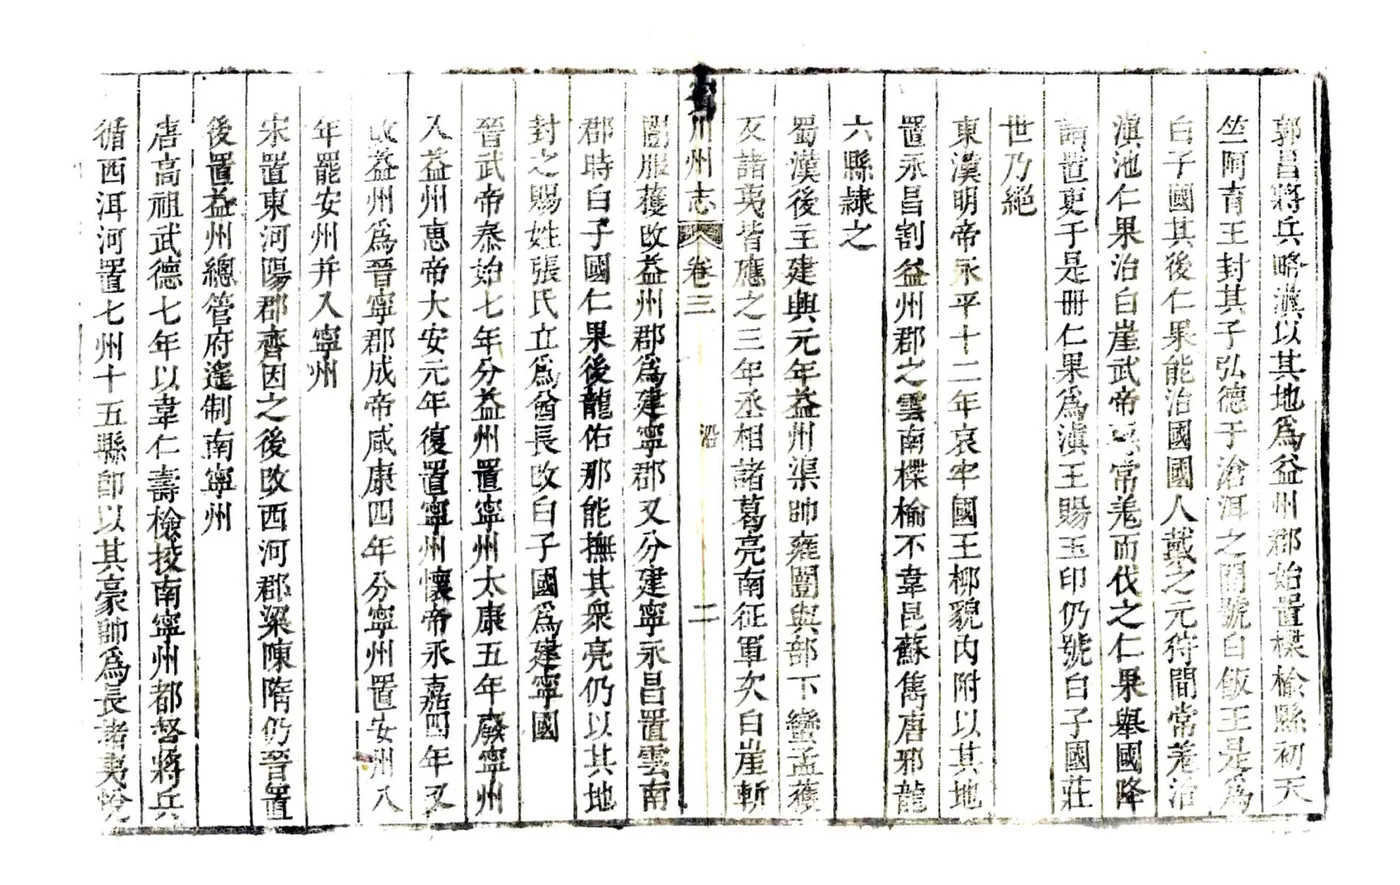 郭昌將兵略滇以其地爲益州郡始置楪榆縣初天
竺阿育王封其子弘德于滄洱之間號白飯王是爲
白子國其後仁果能治國國人戴之元狩間常羌治
滇池仁果治白崖武帝常羌而伐之仁果舉國降
請置吏于是冊仁果爲滇王賜玉印仍號白子國莊
世乃絕
東漢明帝永平十二年哀牢國王柳貌內附以其地
置永昌割益州郡之雲南楪榆不韋昆蘇雋唐邪龍
六縣隷之
蜀漢後主建興元年益州渠帥雍闓與部下蠻孟獲
及諸夷皆應之三年丞相諸葛亮南征軍次白崖斬
川州志 卷三 沿 二
闓服獲改益州郡爲建寧郡又分建寧永昌置雲南
郡時白子國仁果後龍佑那能撫其衆亮仍以其地
封之賜姓張氏立爲酋長改白子國爲建寧國
晉武帝泰始七年分益州置寧州太康五年廢寧州
入益州惠帝大安元年復置寧州懷帝永嘉四年又
改益州爲晉寧郡成帝咸康四年分寧州置安州八
年罷安州并入寧州
宋置東河陽郡齊因之後改西河郡梁陳隋仍晉置
後置益州總管府遙制南寧州
唐高祖武德七年以韋仁壽檢挍南寧州都督將兵
循西洱河置七州十五縣卽以其豪帥爲長諸夷悅